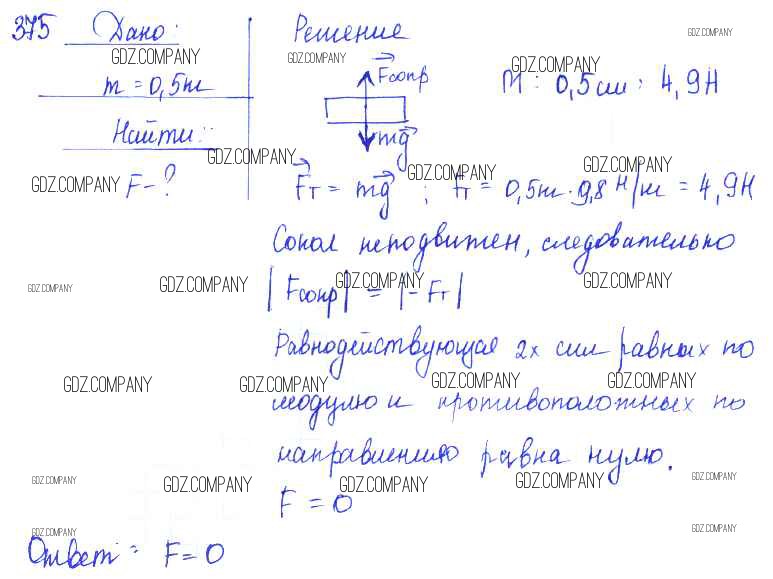 375 Дано: Решение
GDZ.COMPANY
GDZ.COMPANY GDZ.COMPANY
m = 0,5кг Fсопр М : 0,5см : 4,9Н
GDZ.COMPANY
Найти: mg
GDZ.COMPANY GDZ.COMPANY
GDZ.COMPANY F - ? Fт = mg ; Fт = 0,5кг · 9,8 Н/кг = 4,9Н
GDZ.COMPANY
Сокол неподвижен, следовательно
GDZ.COMPANY GDZ.COMPANY GDZ.COMPANY GDZ.COMPANY
|Fсопр| = |-Fт|
Равнодействующая 2х сил равных по
GDZ.COMPANY GDZ.COMPANY GDZ.COMPANY GDZ.COMPANY
модулю и противоположных по
направлению равна нулю.
GDZ.COMPANY GDZ.COMPANY GDZ.COMPANY GDZ.COMPANY GDZ.COMPANY
F = 0
GDZ.COMPANY GDZ.COMPANY
Ответ: F = 0